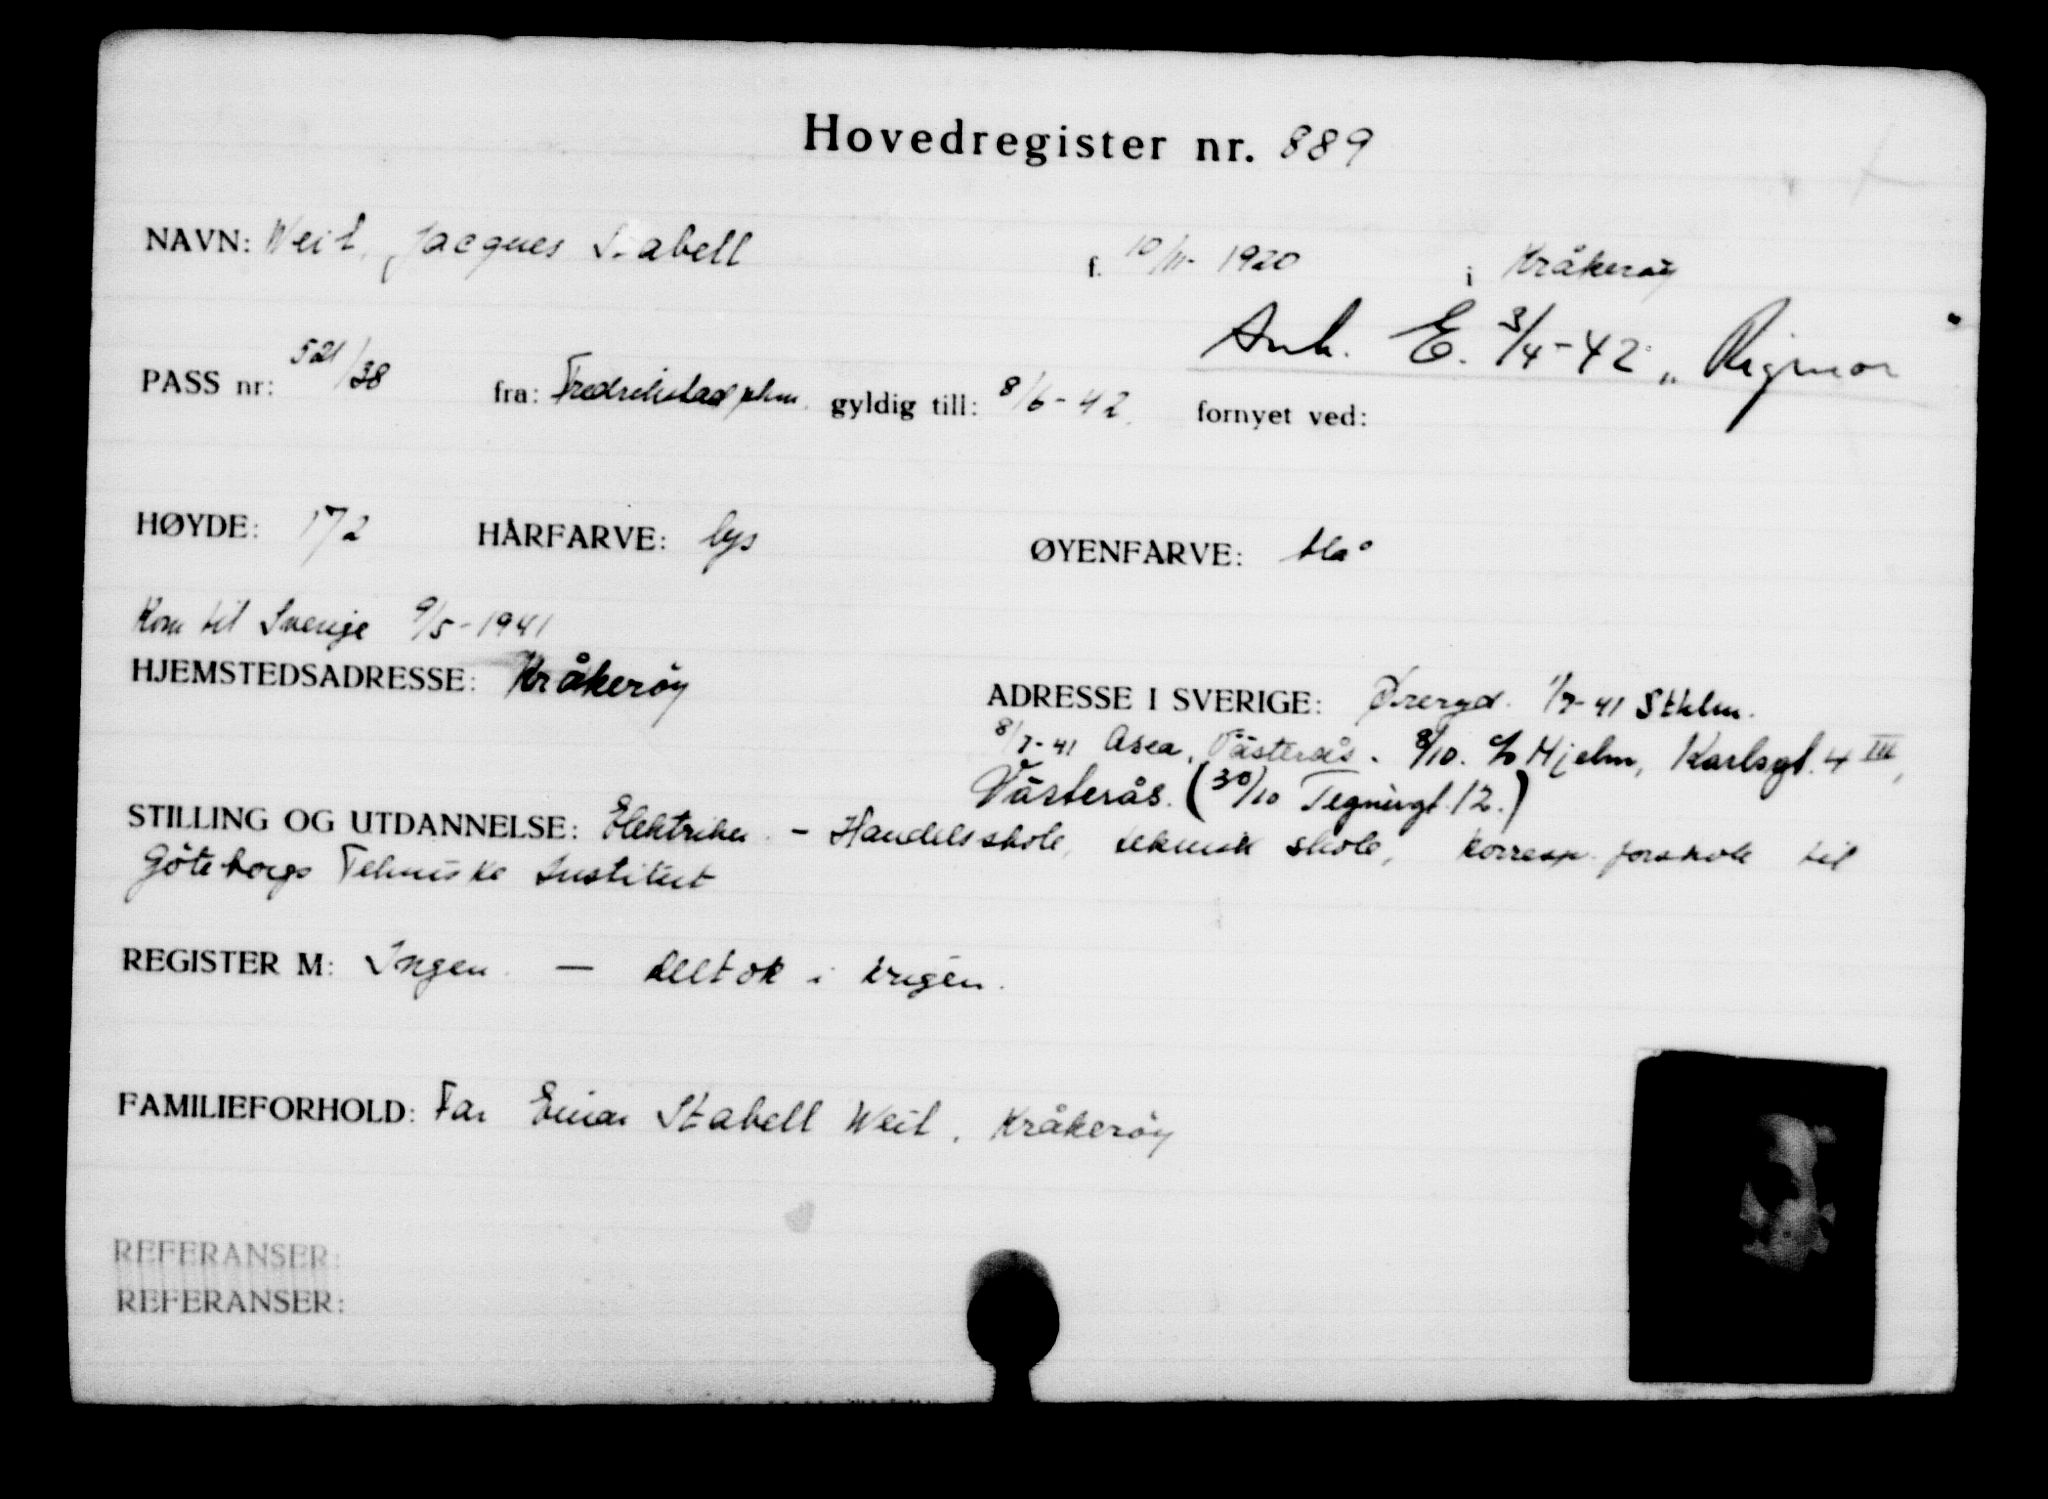 Hovedregister nr. 889
NAVN: Weil, Jacques Stabell f. 10/11- 1920 i Kråkerøy
Ank. E. 3/4-42 „Rigmor"
PASS nr: 521/38 fra: Fredrikstad pkm. gyldig till: 8/6-42. fornyet ved:
HØYDE: 172 HÅRFARVE: lys ØYENFARVE: blå
Kom til Sverige 9/5-1941
HJEMSTEDSADRESSE: Kråkerøy ADRESSE I SVERIGE: Øreryd. 1/7-41 Sthlm.
8/7-41 Asea, Västerås. 8/10. c/o Hjelm, Karlsgt. 4 III,
Västerås. (30/10 Tegnérgt. 12.)
STILLING OG UTDANNELSE: Elektriker. - Handelsskole, teknisk skole, korresp. forskole til
Göteborgs Tekniske Institut
REGISTER M: Ingen. — deltok i krigen.
FAMILIEFORHOLD: Far Einar Stabell Weil, Kråkerøy
REFERANSER:
REFERANSER: